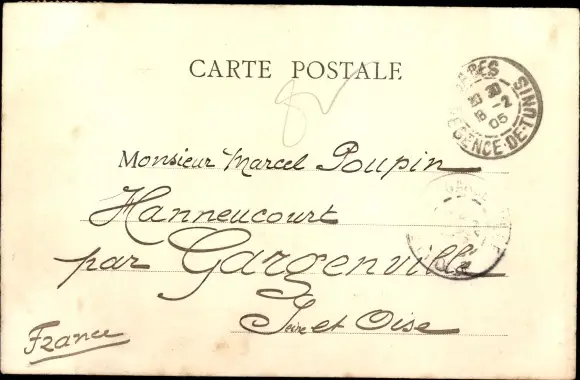 CARTE POSTALE
82
SINDI
8 -2
05
REGENCE-DE-TUNIS
Monsieur Marcel Poupin
Hanneucourt
par Gargenville
Seine et Oise
France